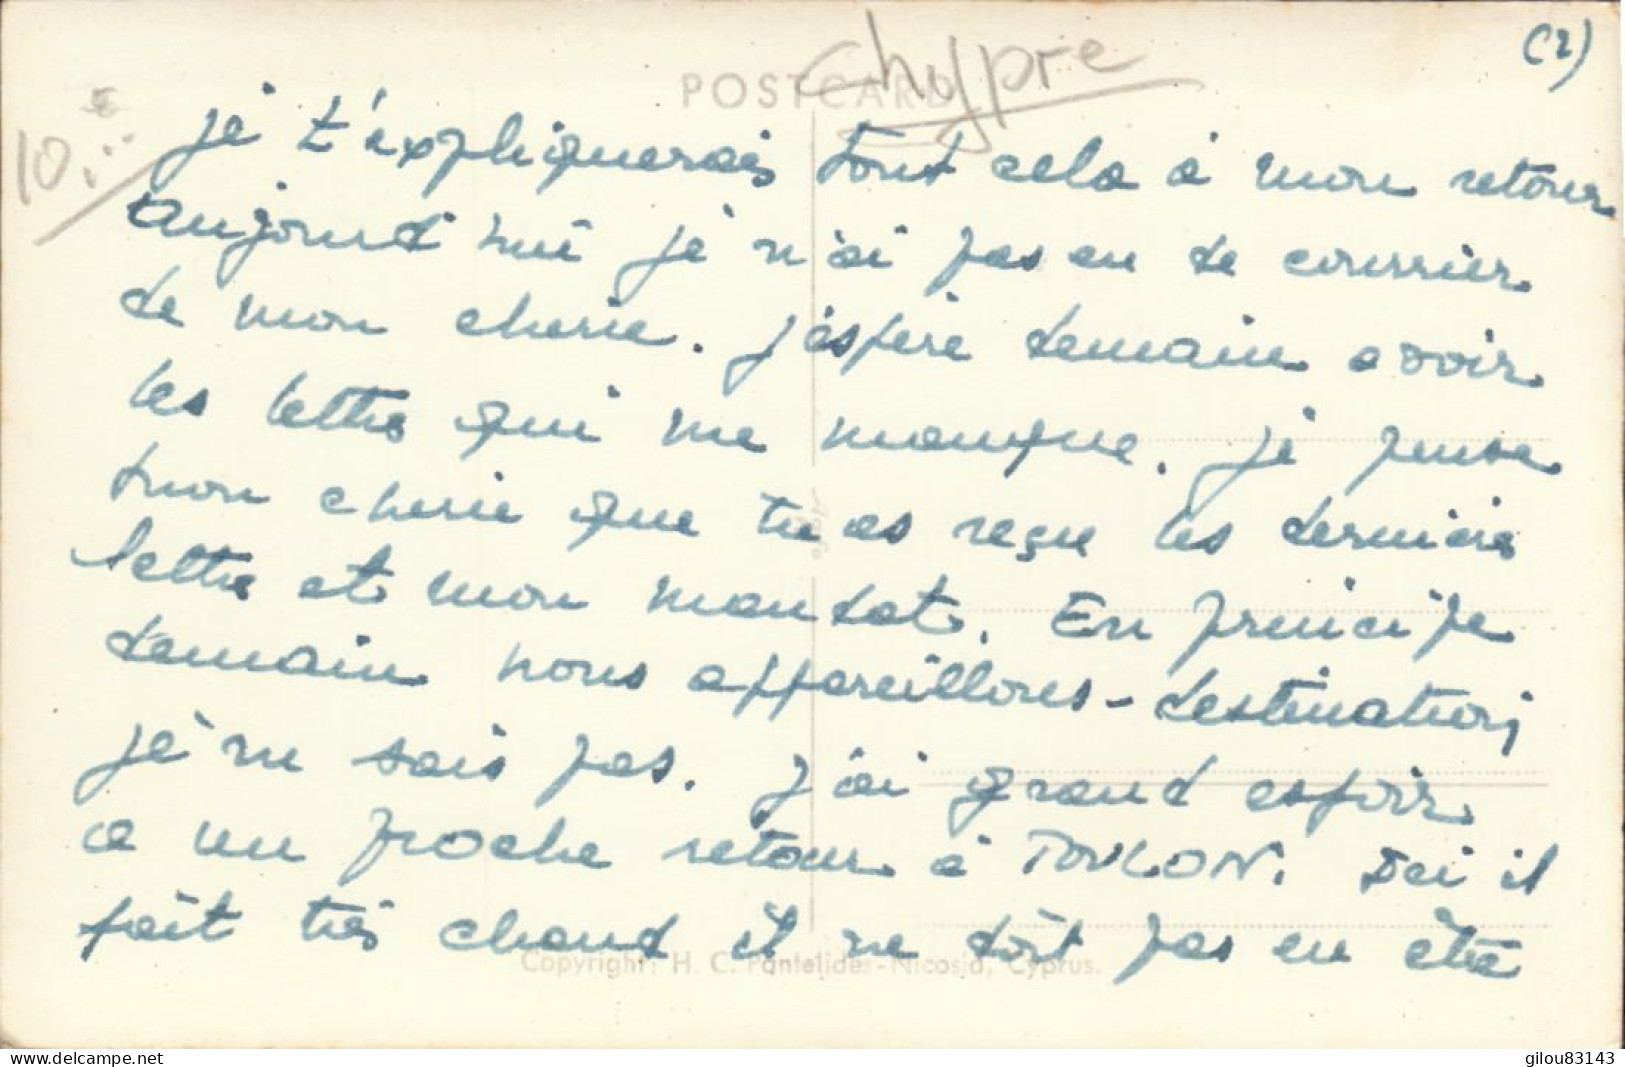 (2)
chypre
POSTCARD
10.
je t'expliquerais tout cela à mon retour
aujourd'hui je n'ai pas eu de courrier
de mon cherie. J'éspère demain avoir
les lettre qui me manque. Je pense
mon cherie que tu as reçu les dernière
lettre et mon mandat. En principe
demain nous appareillons - destination
je ne sais pas. J'ai grand espoir
a un proche retour à TOULON. Ici il
fait très chaud il ne doit pas en être
Copyright: H. C. Pantelides - Nicosia, Cyprus.
www.delcampe.net
gilou83143